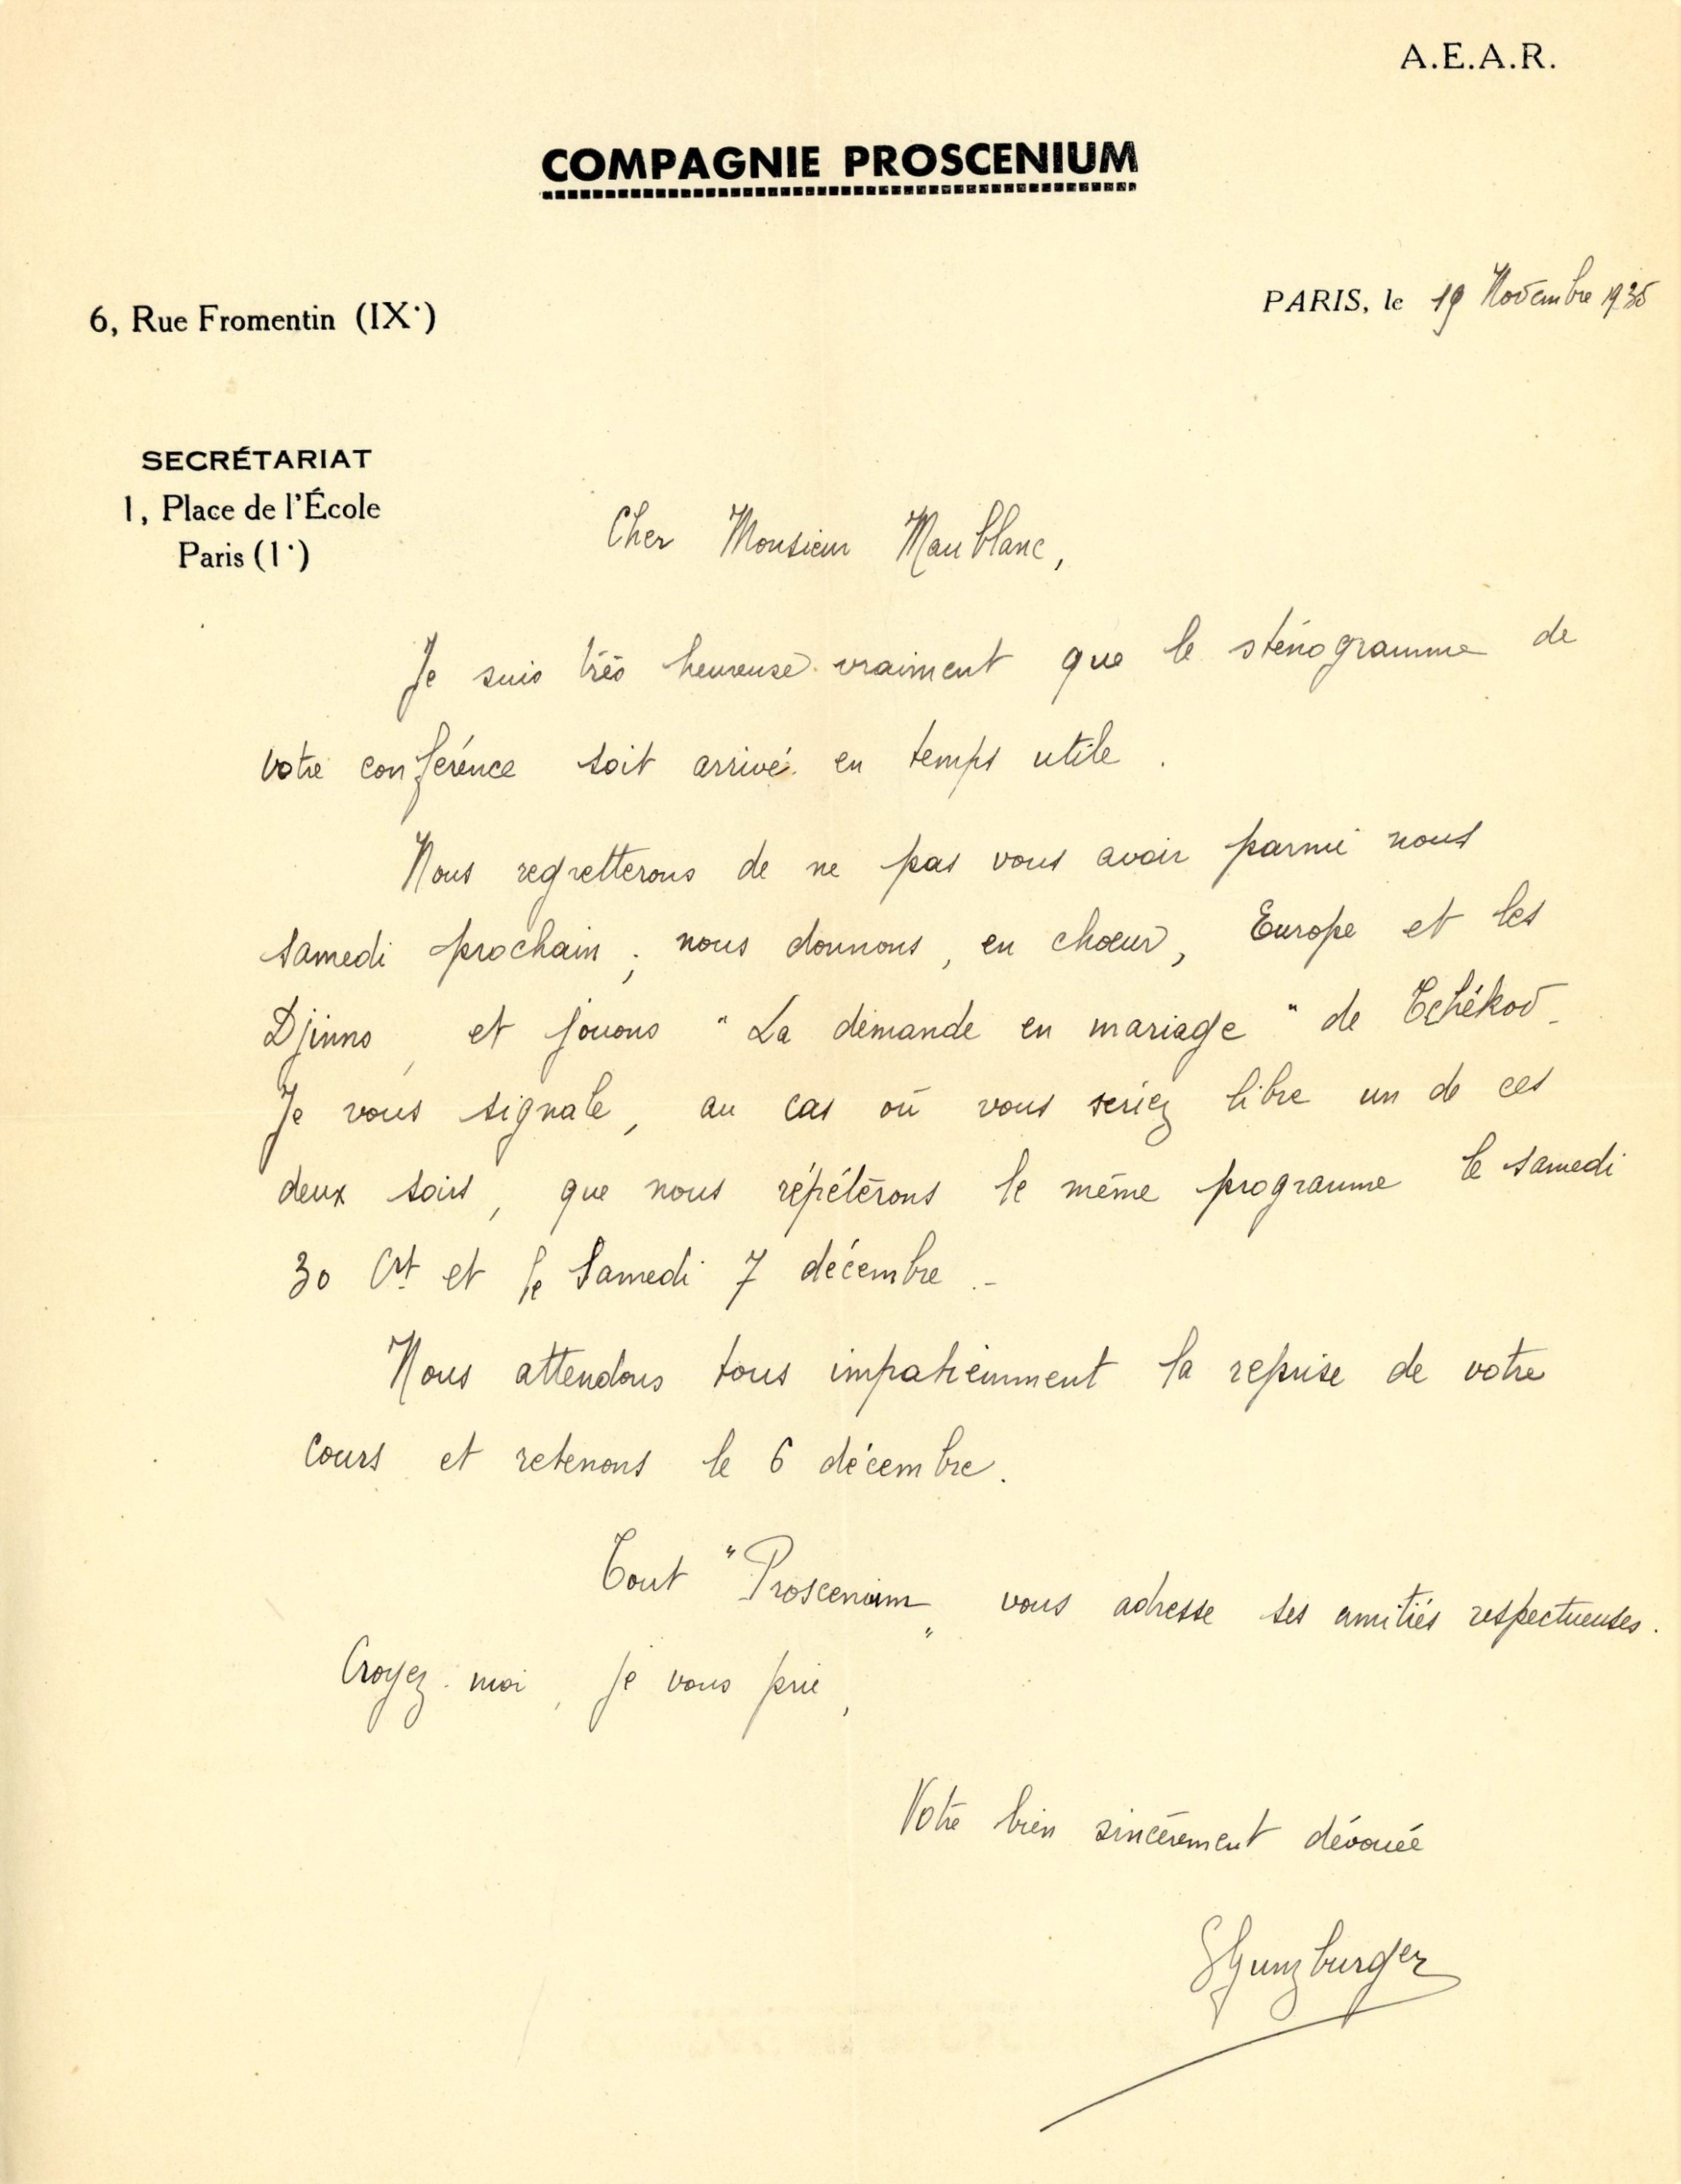 A.E.A.R.
COMPAGNIE PROSCENIUM
6, Rue Fromentin (IX•)
PARIS, le 19 Novembre 1935
SECRÉTARIAT
1, Place de l'École
Paris (1•)
Cher Monsieur Maublanc,
Je suis très heureuse vraiment que le sténogramme de
votre conférence soit arrivé en temps utile.
Nous regretterons de ne pas vous avoir parmi nous
samedi prochain ; nous donnons, en chœur, Europe et les
Djinns, et jouons "La demande en mariage" de Tchékov -
Je vous signale, au cas où vous seriez libre un de ces
deux soirs, que nous répéterons le même programme le samedi
30 Ct et le Samedi 7 décembre.-
Nous attendons tous impatiemment la reprise de votre
cours et retenons le 6 décembre.
Tout "Proscenium" vous adresse ses amitiés respectueuses.
Croyez-moi, je vous prie,
Votre bien sincèrement dévouée
SGunzburger